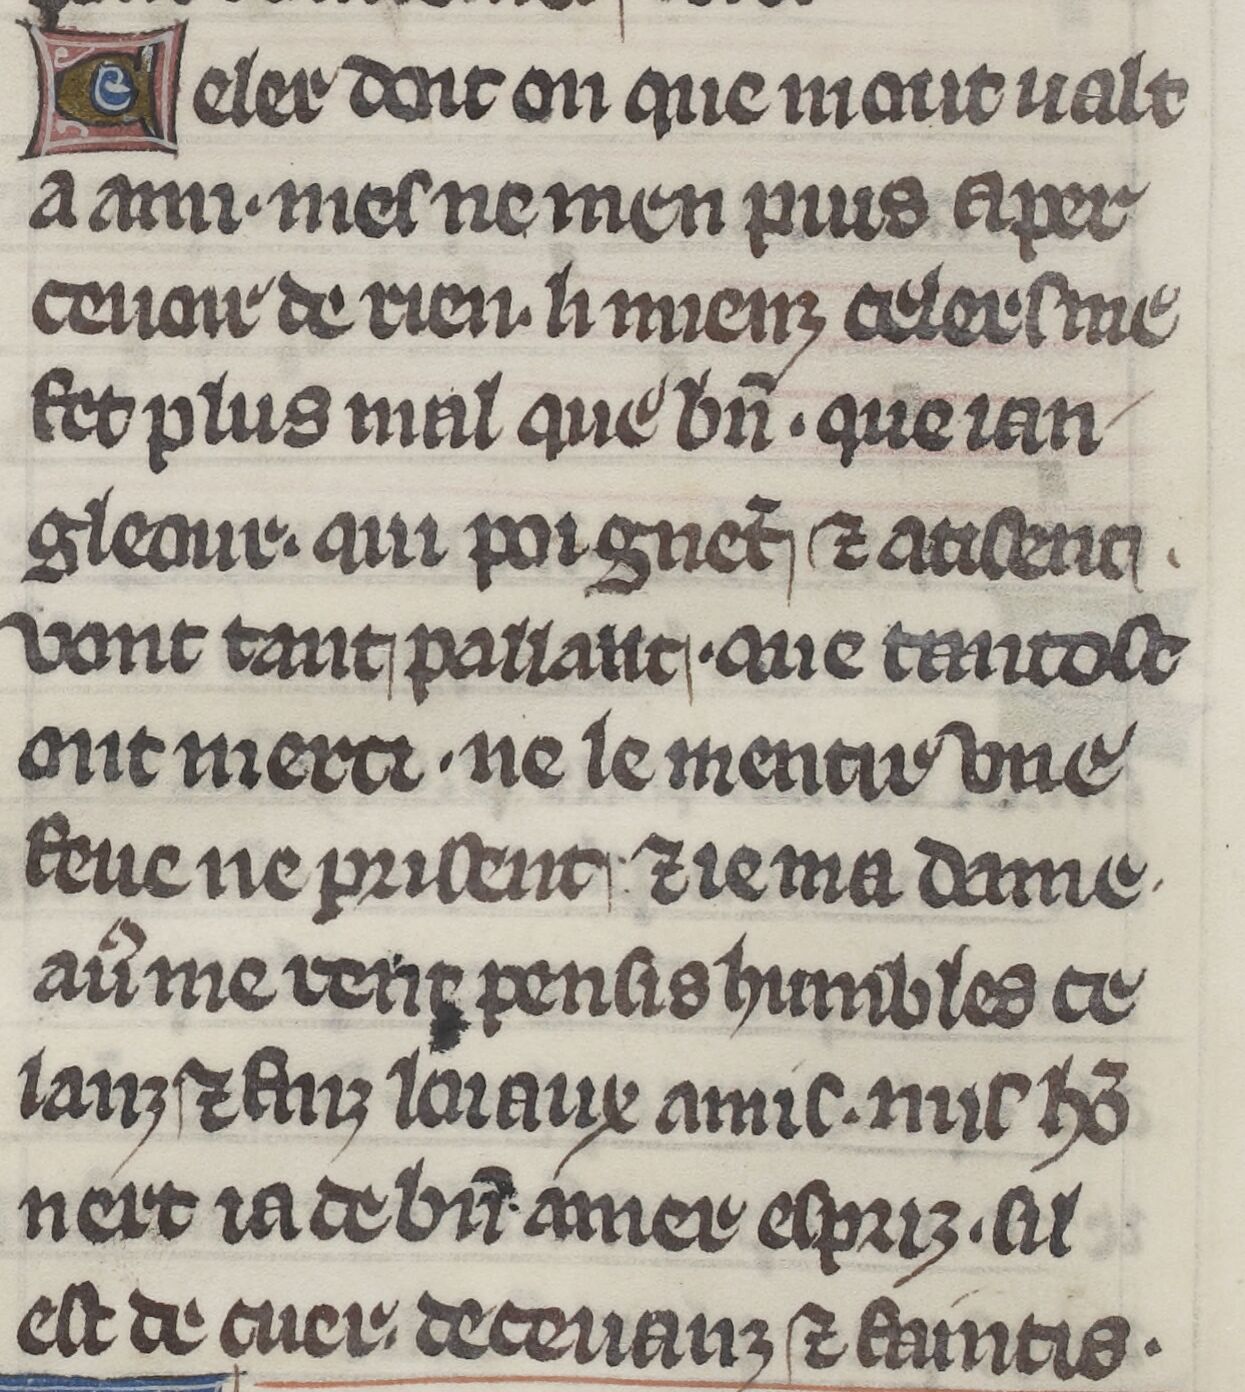 Celer doit on que mout ualt
a ami · mes ne men puis aper
ceuoir de rien · li miens celers me
fet plus mal que bn̄ · que ian
gleour · qui poignēt ⁊ atisent
vont tant pallant · que tantost
ont merci · ne le mentir vne
feue ne prisent ⁊ ie ma dame
aū me tent pensis humbles ce
lanz ⁊ finz loiaux amis · nus hō
nert ia de bn̄ amer espriz · sil
est de cuer · deceuanz ⁊ faintis ·